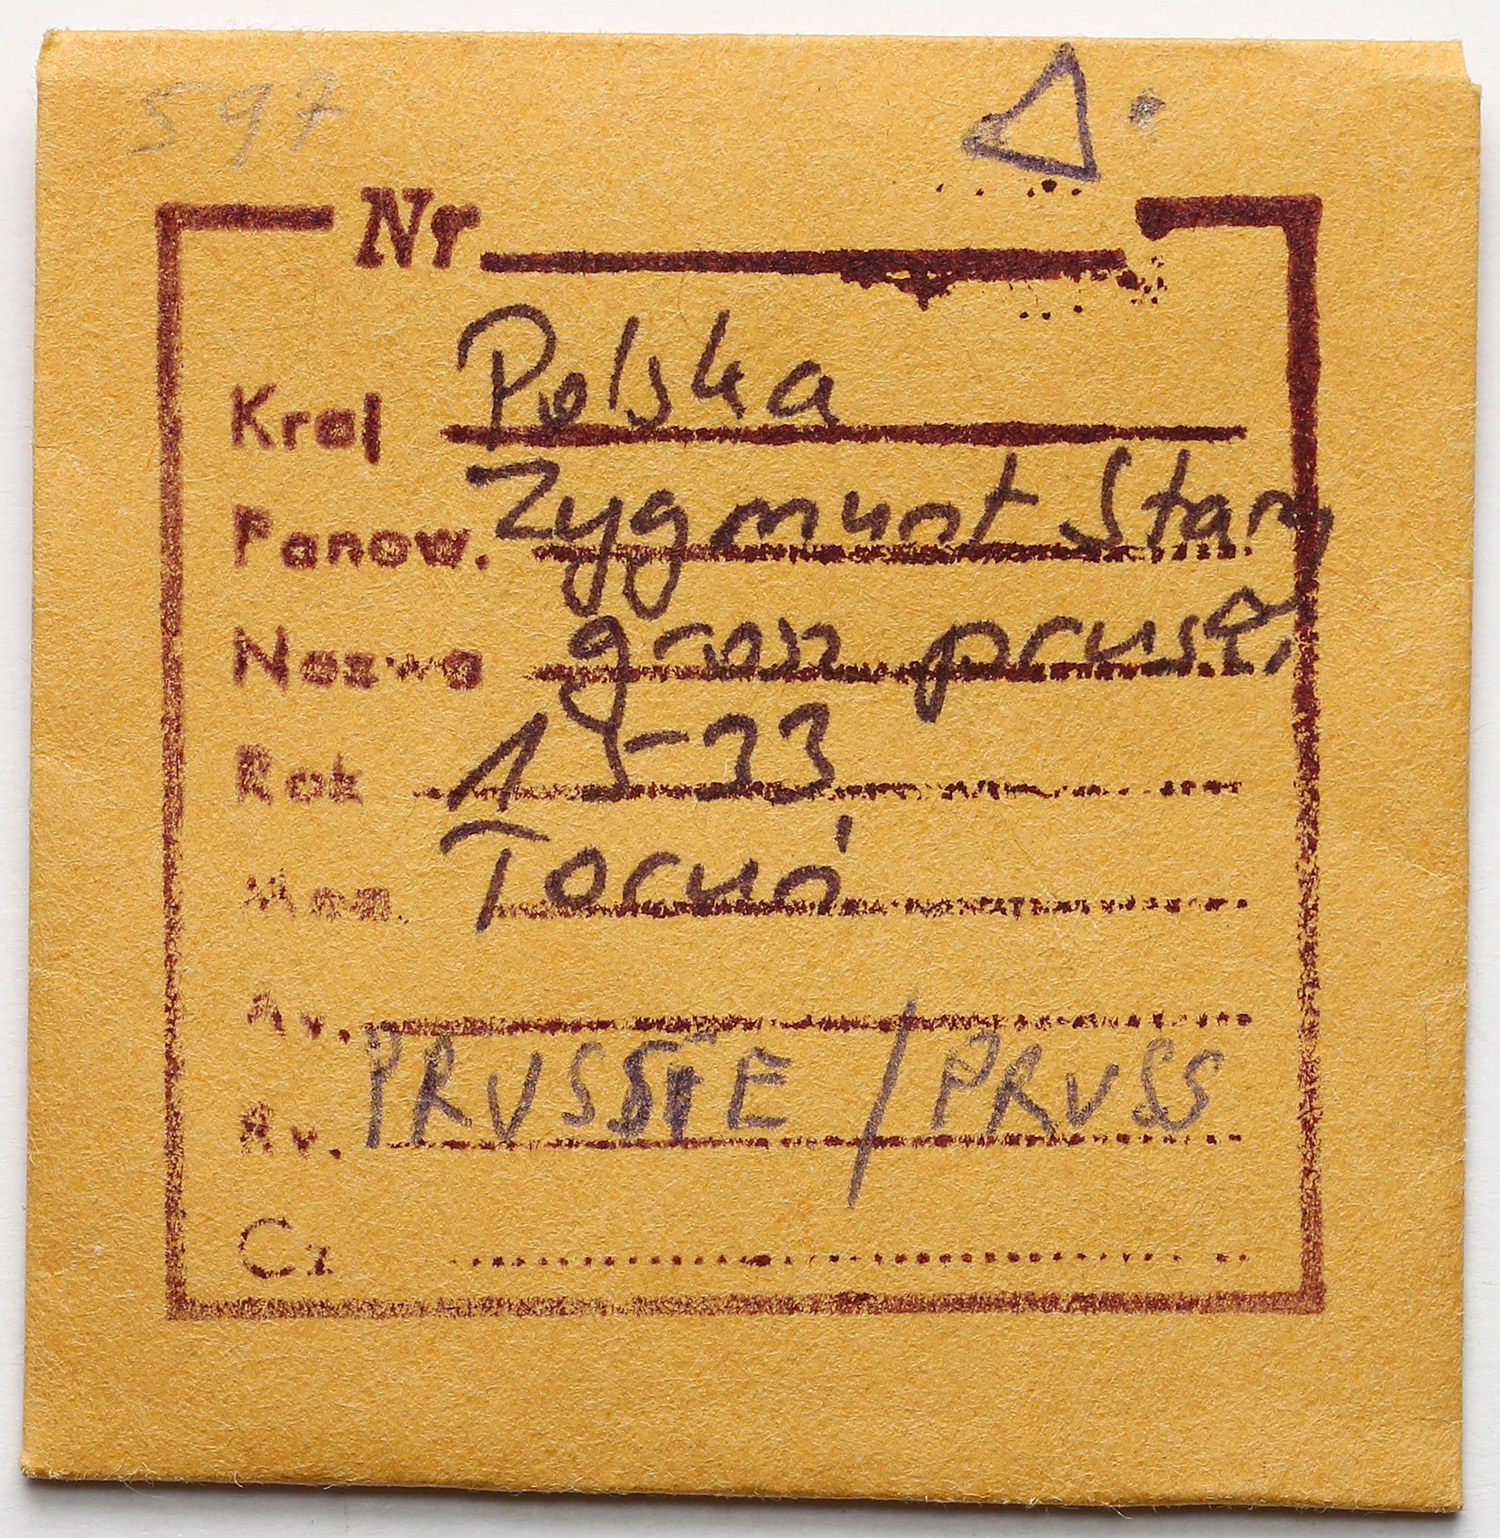 597
Nr
Kraj Polska
Panow. Zygmunt Stary
Nazwa grosz pruski
Rok 1533
Men. Toruń
Av.
Rv. PRVSSIE / PRVSS
Cz